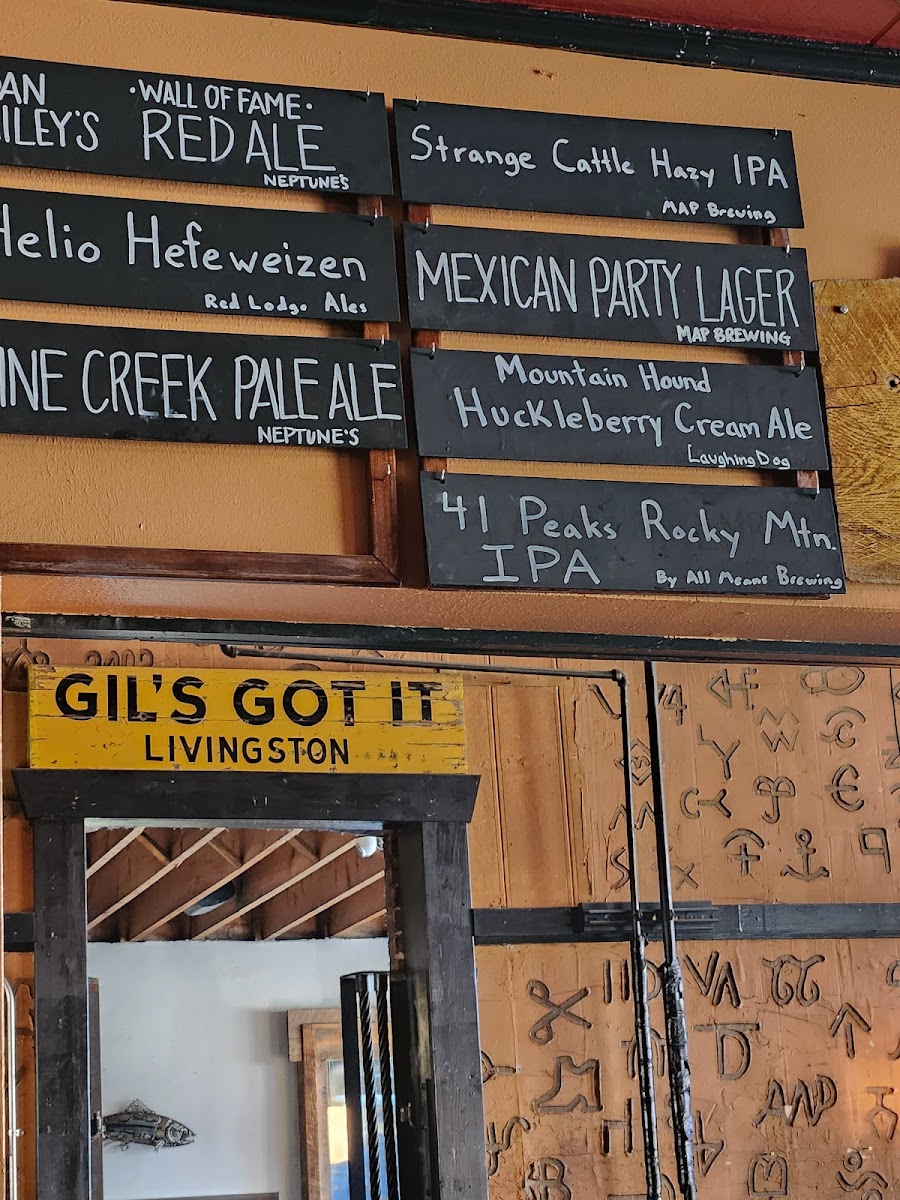 ·WALL OF FAME·
RED ALE
NEPTUNE'S
Helio Hefeweizen
Red Lodge Ales
CREEK PALE ALE
NEPTUNE'S
Strange Cattle Hazy IPA
MAP Brewing
MEXICAN PARTY LAGER
MAP BREWING
Mountain Hound
Huckleberry Cream Ale
Laughing Dog
41 Peaks Rocky Mtn.
IPA
By All Means Brewing
GIL'S GOT IT
LIVINGSTON